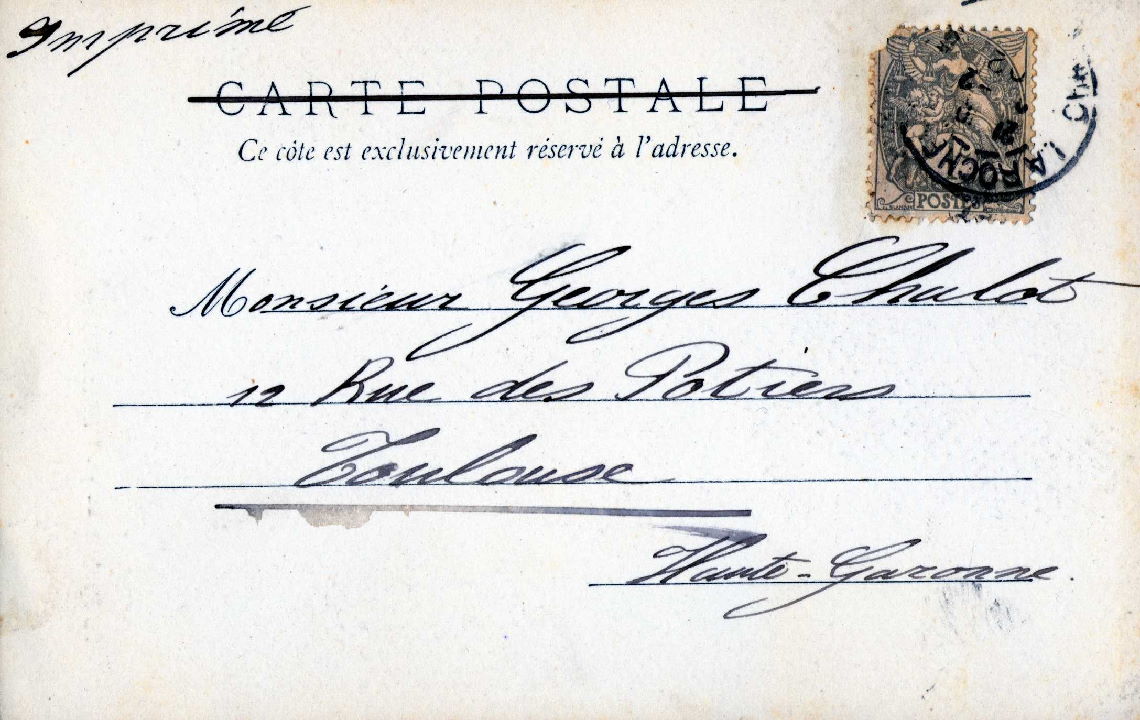 Imprimé
CARTE POSTALE
Ce côte est exclusivement réservé à l'adresse.
POSTES
LA ROCHE
CHA
Monsieur Georges Chalot
12 Rue des Potiers
Toulouse
Haute-Garonne.